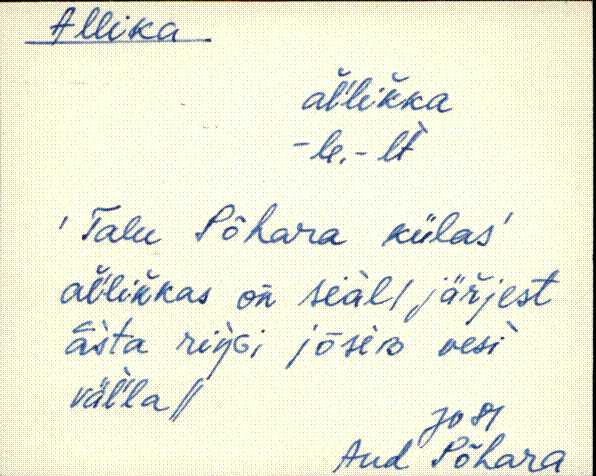 Allika
al̆'likka
-le, -lt̀
'Talu Põhara külas'
al̆'likkas on̄ seàl / jär̆jest
àsta riŋGi jōseB vesì
väl̆'la //
Jõ 81
Aud Põhara